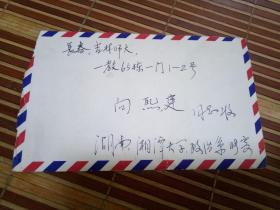 长春，吉林师大，
一教65栋一门1-2号
向熙建 同志收
湖南湘潭大学政治系